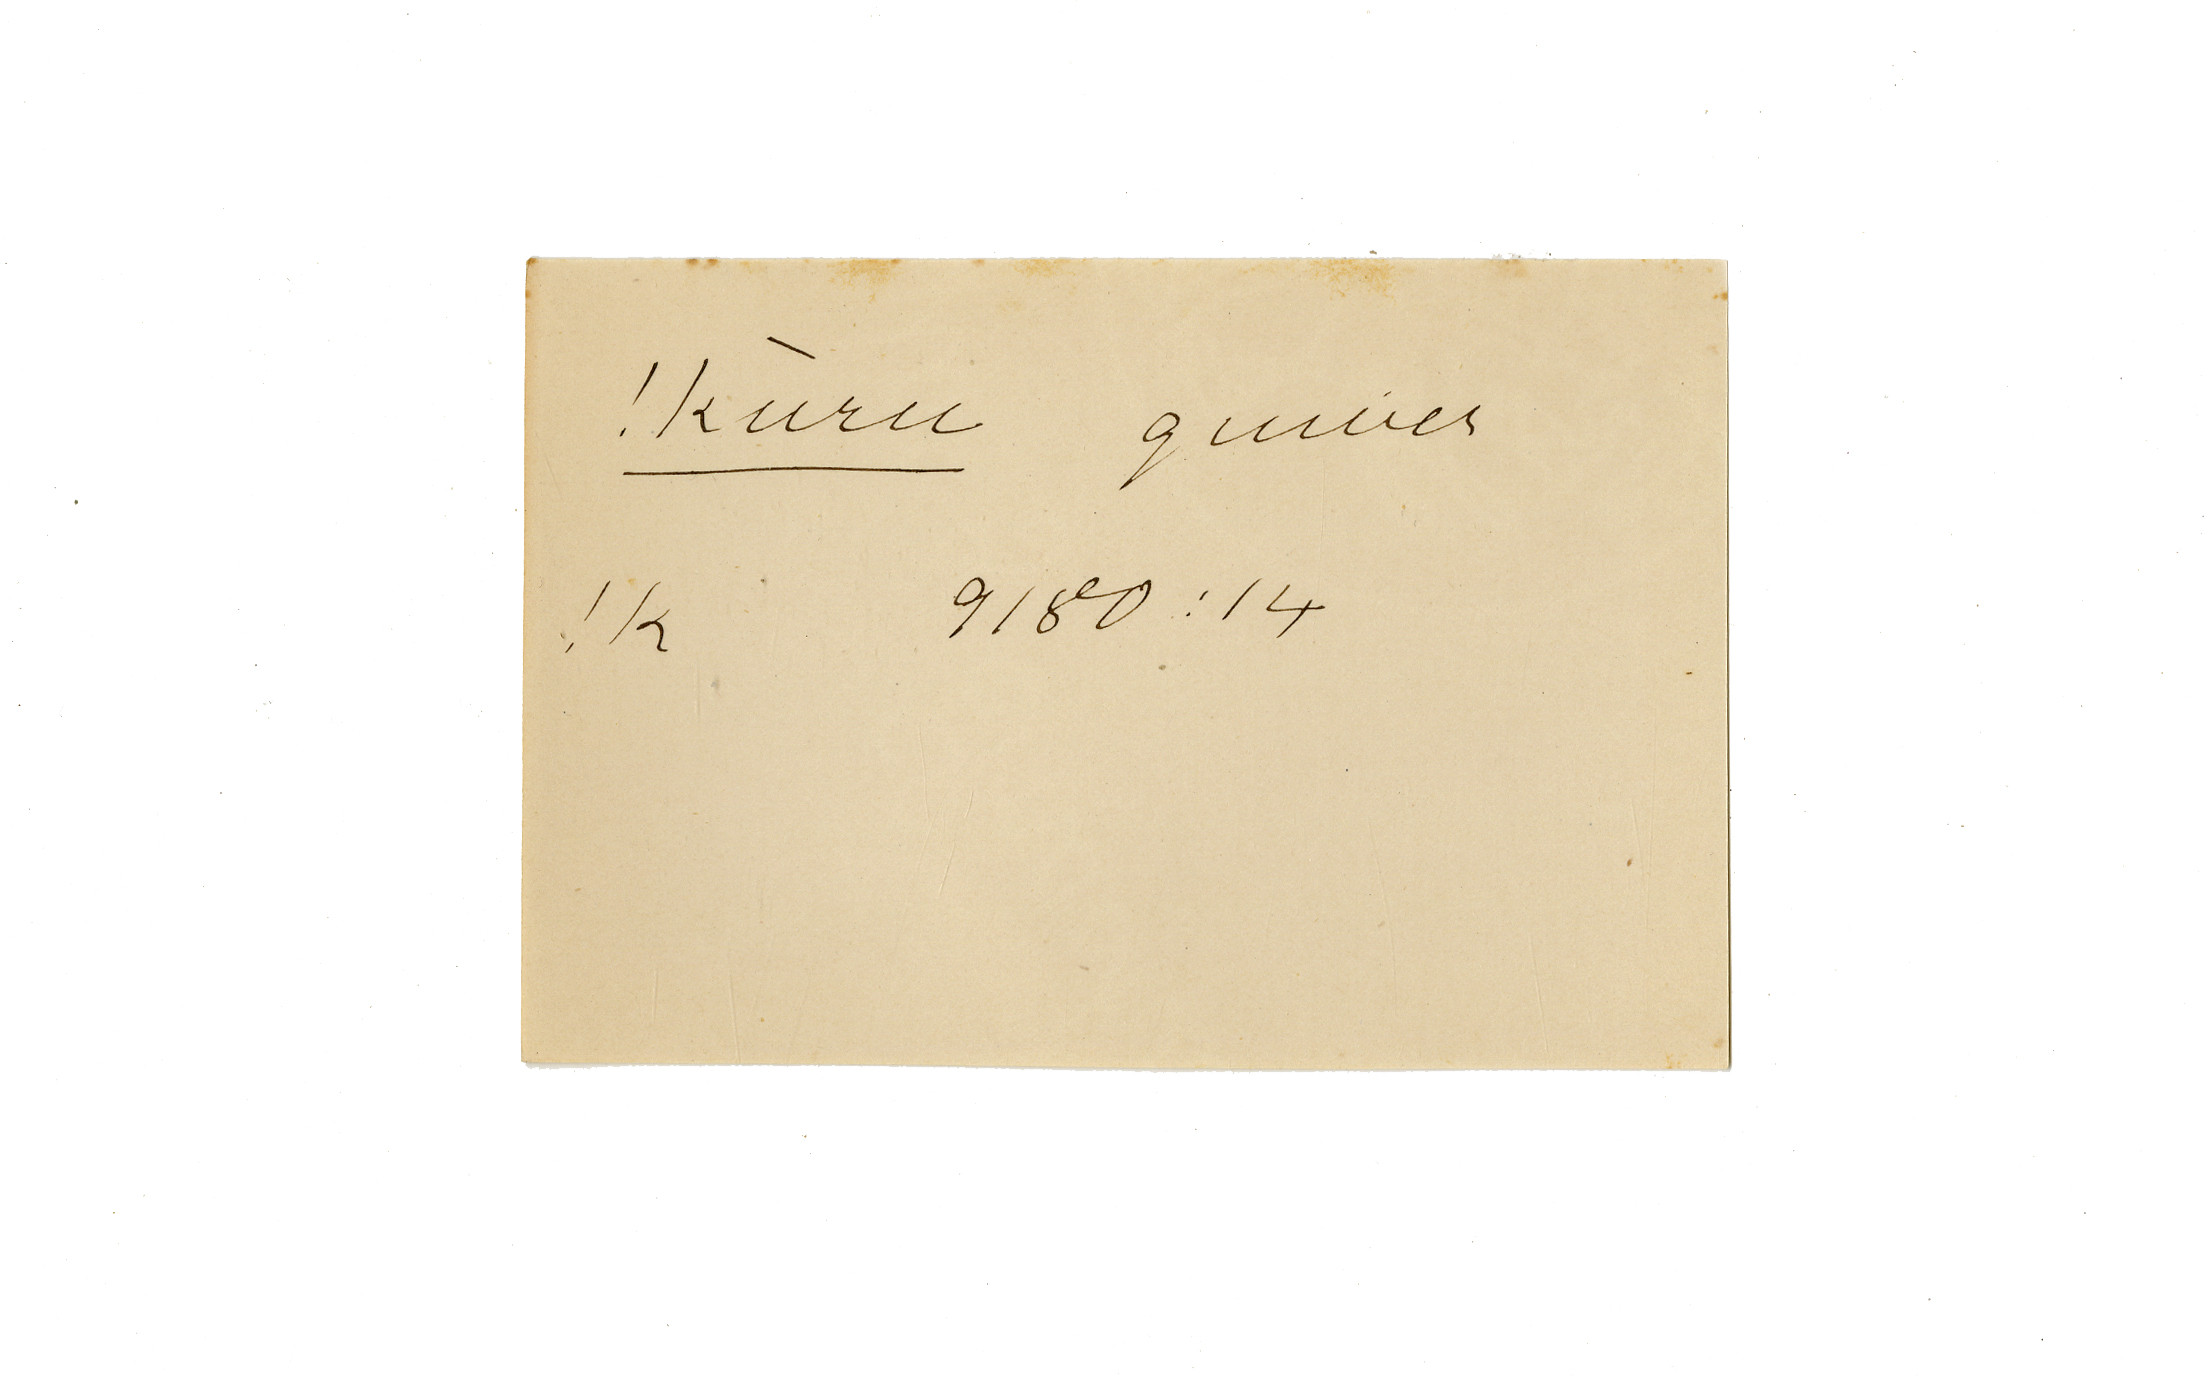 !kùru quiver
!k 9180:14